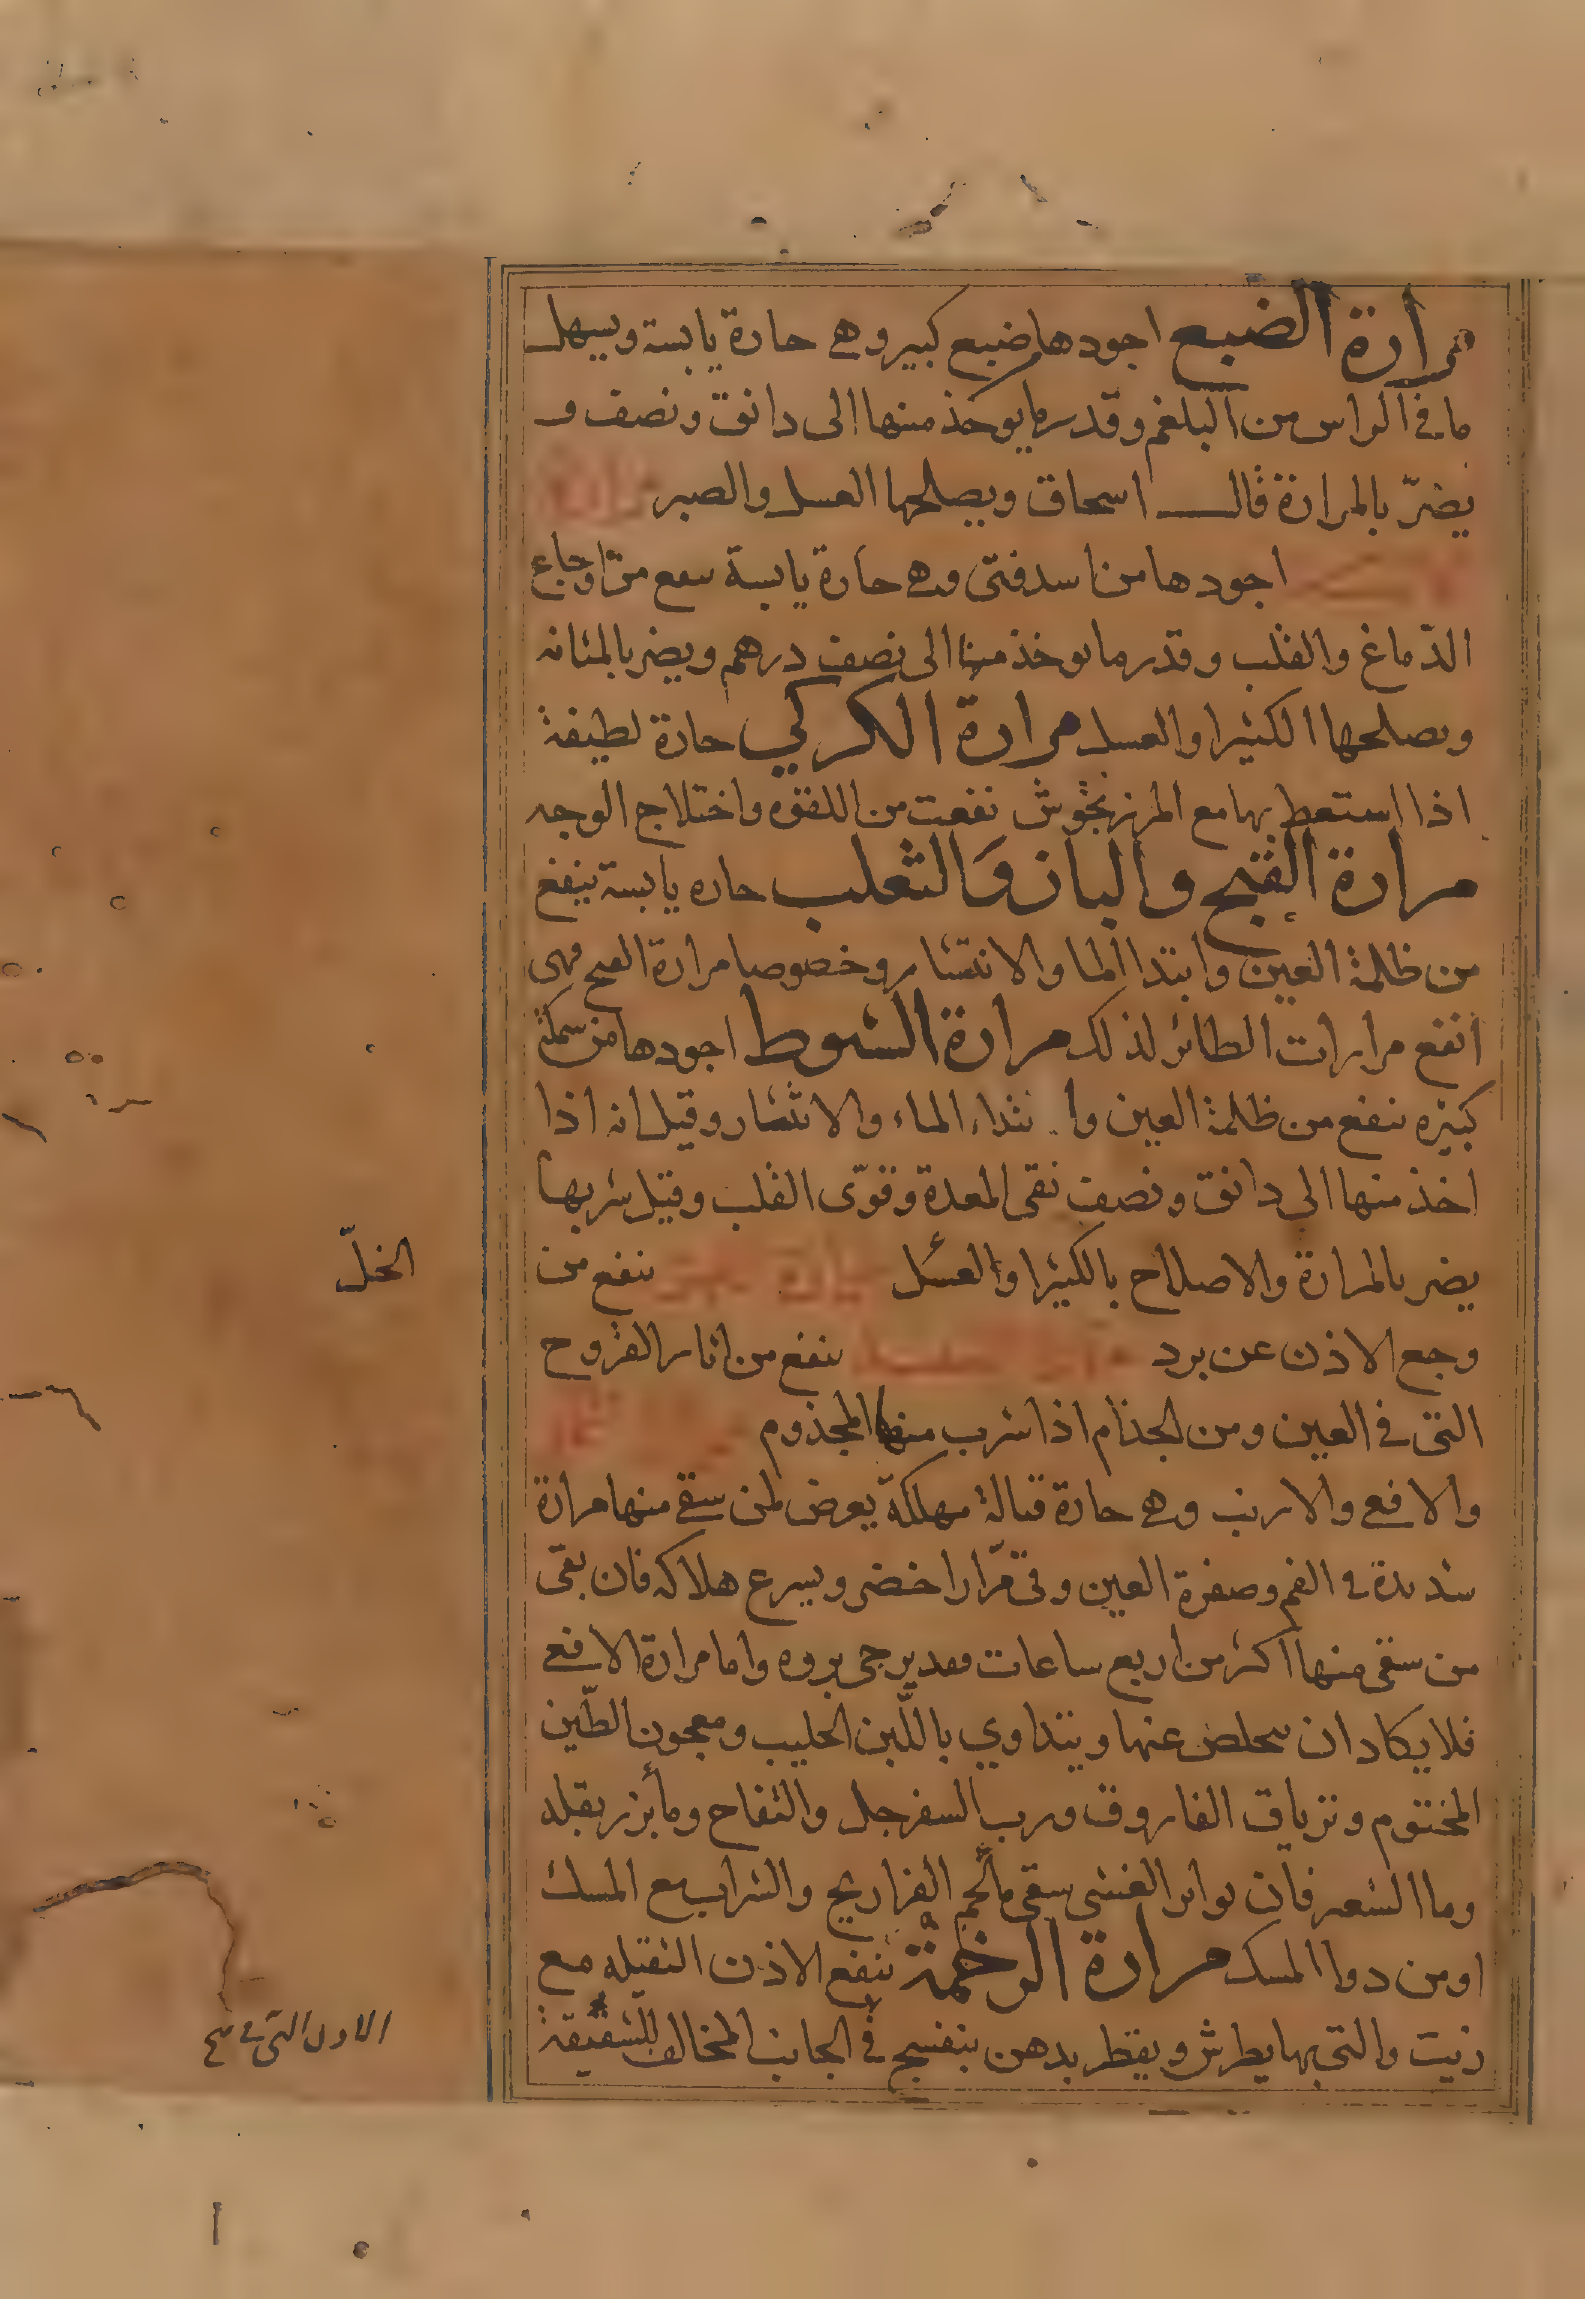 مرارة الضبع اجودها ضبع كبير وهي حارة يابسة ويسهل
ما في الراس من البلغم وقدر ما يوخذ منها الى دانق ونصف و
يضرّ بالمرارة قال اسحاق ويصلحها العسل والصبر مرارة
اجودها من اسد فتى وهي حارة يابسة سفع من اوجاع
الدّماغ والقلب وقدر ما يوخذ منها الى نصف درهم ويضر بالمثانه
ويصلحها الكثيرا والعسل مرارة الكركي حارة لطيفة
اذا استعط بها مع المرزنجوش نفعت من اللقوه واختلاج الوجه
مرارة القبج والباز والثعلب حاره يابسة ينفع
من ظلمة العين وابتدا الما والانتشار وخصوصا مرارة القبج فهى
انفع مرارات الطائر لذلك مرارة الشبوط اجودها من سمكة
كبيره ننفع من ظلمة العين وابتداء الماء والانتشار وقيل انه اذا
اخذ منها الى دانق ونصف نقى المعدة وقوّى القلب وقيل شربها
يضر بالمرارة والاصلاح بالكثيرا والعسل مرارة ننفع من
الخلّ
وجع الاذن عن برد ننفع من اثار القروح
التى في العين ومن الجذام اذا شرب منها المجذوم
والافعي والارنب وهي حارة قتالة مهلكة يعرض لمن سقي منها مرارة
شديدة في الفم وصفرة العين وقى مرّارا خضر ويسرع هلاكه فان بقى
من سقى منها اكثر من اربع ساعات فقد يرجى بروه واما مرارة الافعي
فلا يكاد ان يتخلص عنها ويتداوي باللّبن الحليب ومعجون الطّين
المختوم وترياق الفاروق ورب السفرجل والتفاح وما بزر بقله
وما الشعير فان تواتر الغشى سقى ما لحم الفراريج والشراب مع المسك
او من دوا المسك مرارة الرخمة ننفع الاذن الثقيله مع
زيت والتى بها يطرش ويقطر بدهن بنفسج في الجانب المخالف للشقيقة
الاول التى في